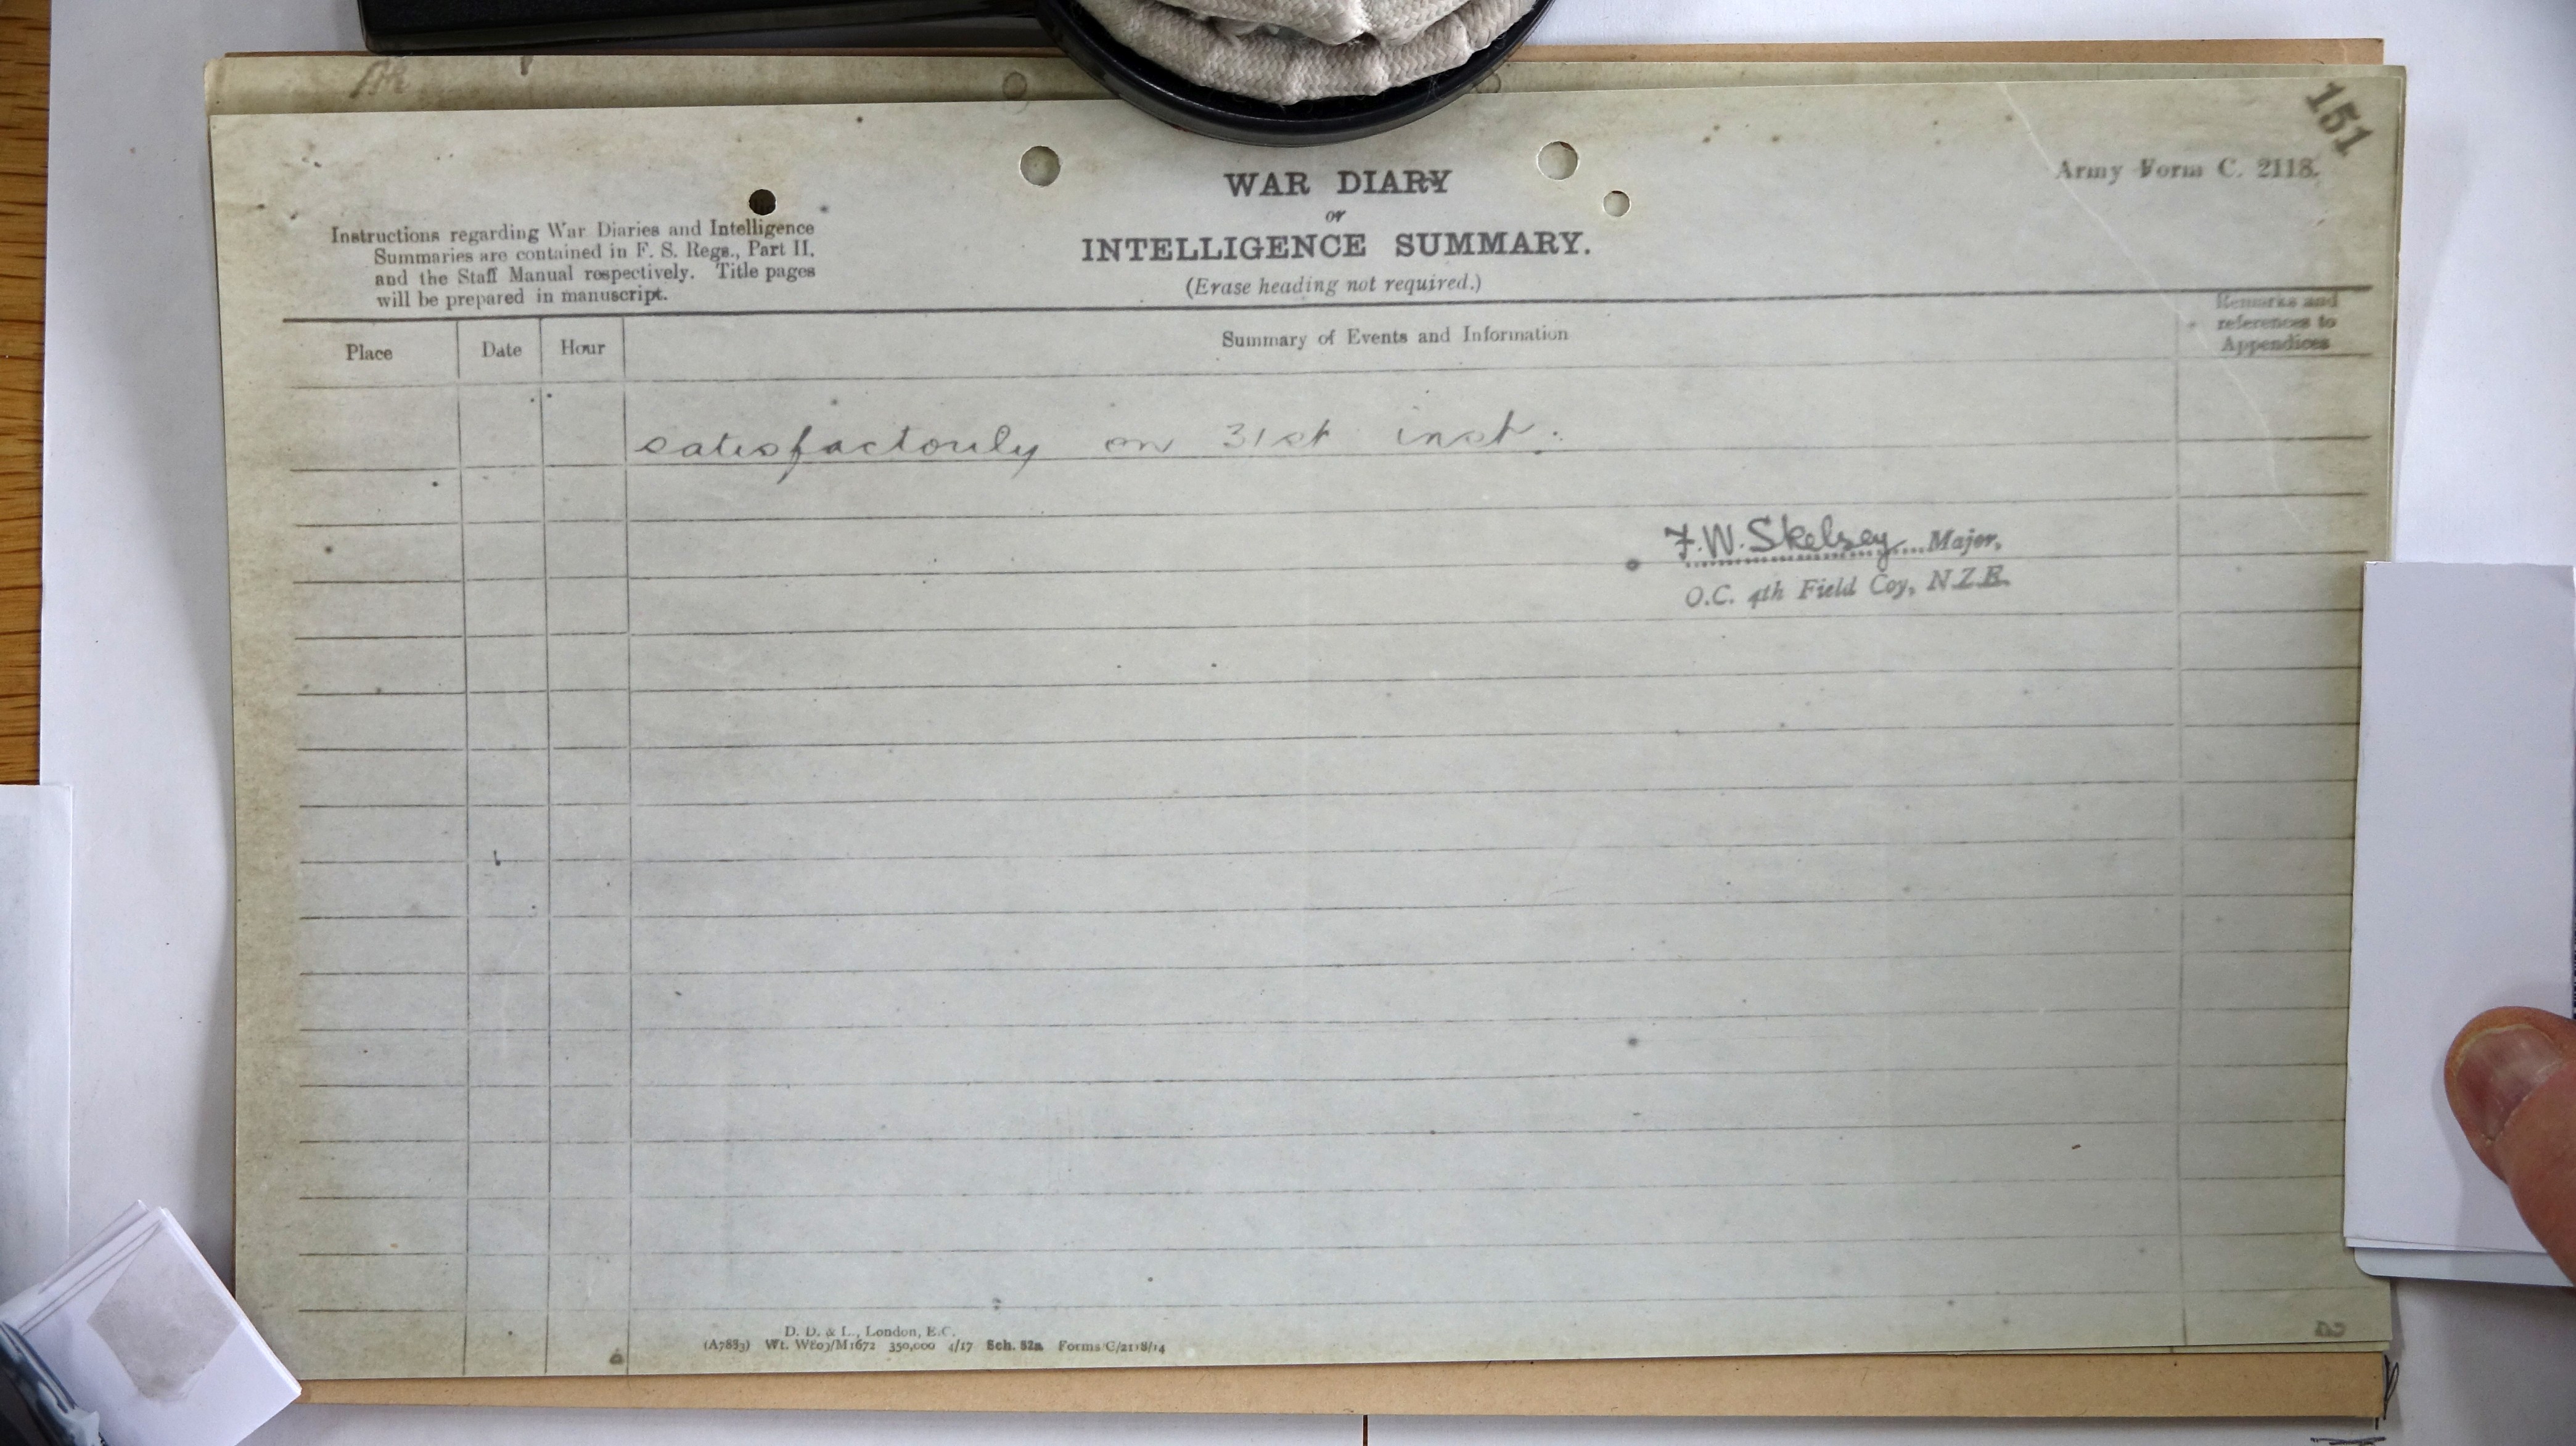 151
Army Form C. 2118.
WAR DIARY
or
INTELLIGENCE SUMMARY.
(Erase heading not required.)
Instructions regarding War Diaries and Intelligence
Summaries are contained in F. S. Regs., Part II.
and the Staff Manual respectively. Title pages
will be prepared in manuscript.
Place Date Hour Summary of Events and Information Remarks and
references to
Appendices
satisfactorily on 31st inst.
F.W. Skelsey Major,
O.C. 4th Field Coy, N.Z.E.
D. D. & L., London, E.C.
(A7883) Wt. W809/M1672 350,000 4/17 Sch. 52a Forms/C/2118/14